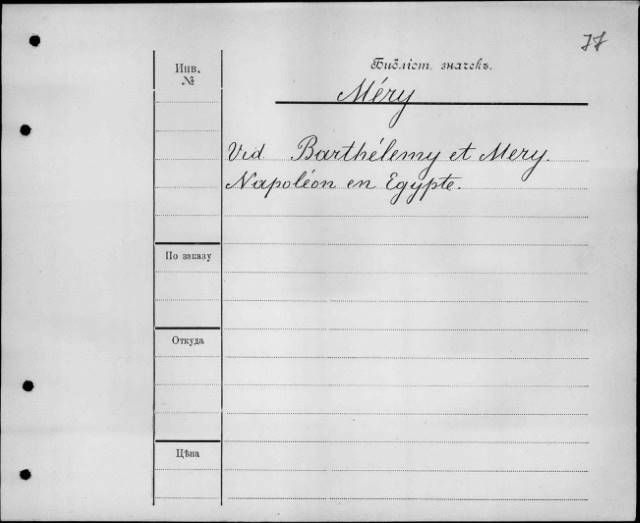 Инв.
№
Библіот. значекъ.
Méry
Vid Barthélemy et Mery.
Napoléon en Egypte.
По заказу
Откуда
Цѣна